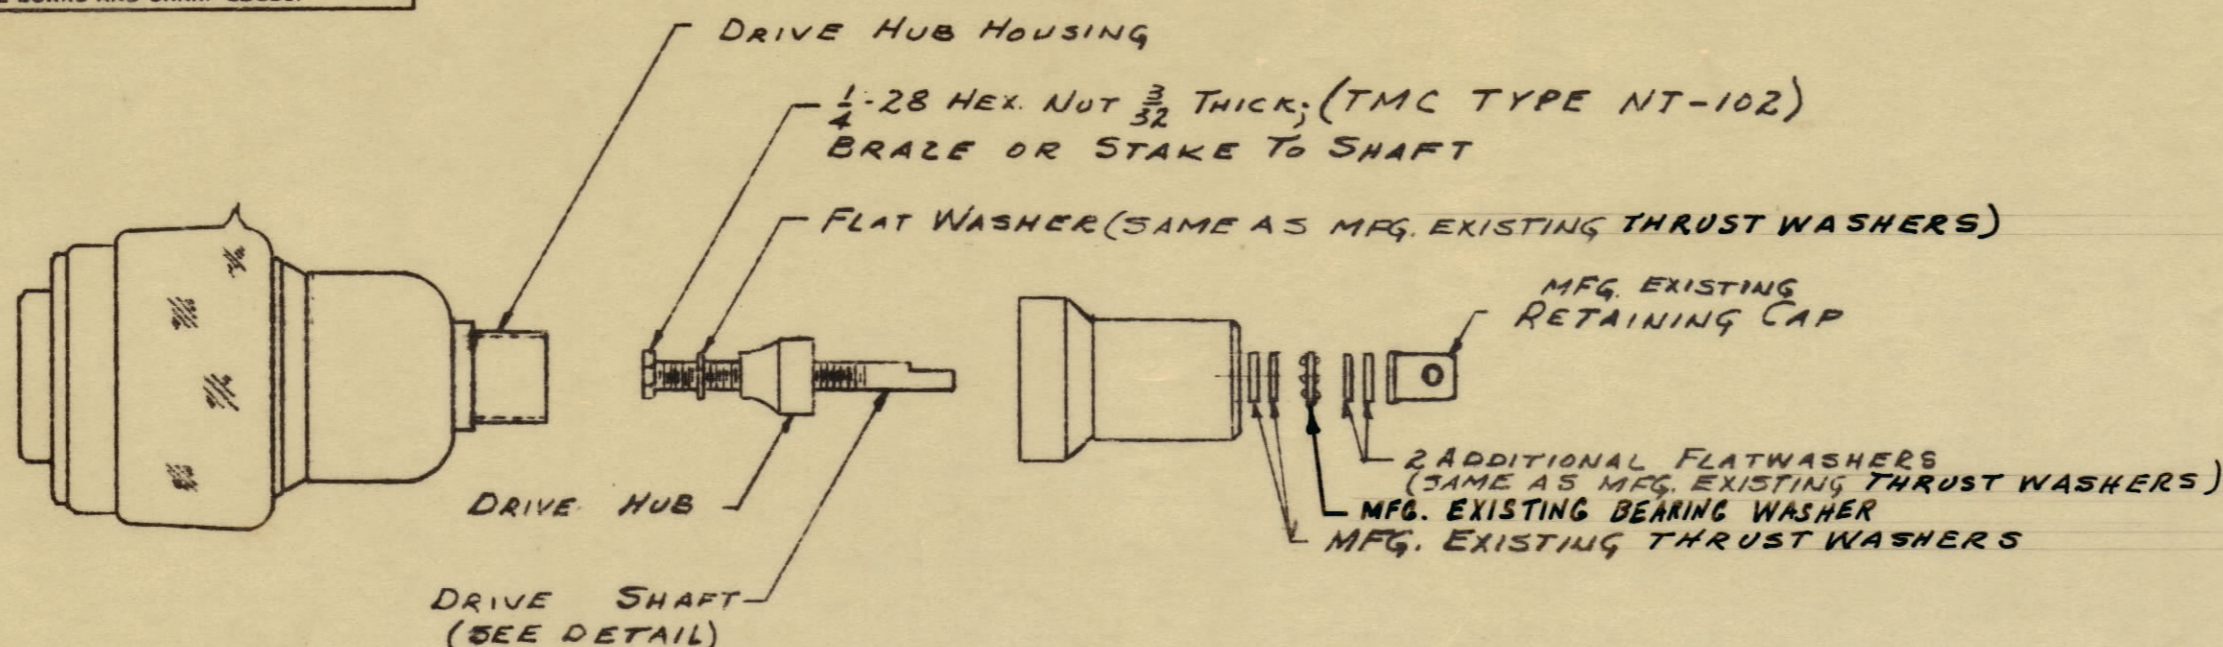 DRIVE HUB HOUSING
1/4-28 HEX. NUT 3/32 THICK; (TMC TYPE NT-102)
BRAZE OR STAKE TO SHAFT
FLAT WASHER (SAME AS MFG. EXISTING THRUST WASHERS)
MFG. EXISTING
RETAINING CAP
2 ADDITIONAL FLATWASHERS
(SAME AS MFG. EXISTING THRUST WASHERS)
MFG. EXISTING BEARING WASHER
MFG. EXISTING THRUST WASHERS
DRIVE HUB
DRIVE SHAFT
(SEE DETAIL)